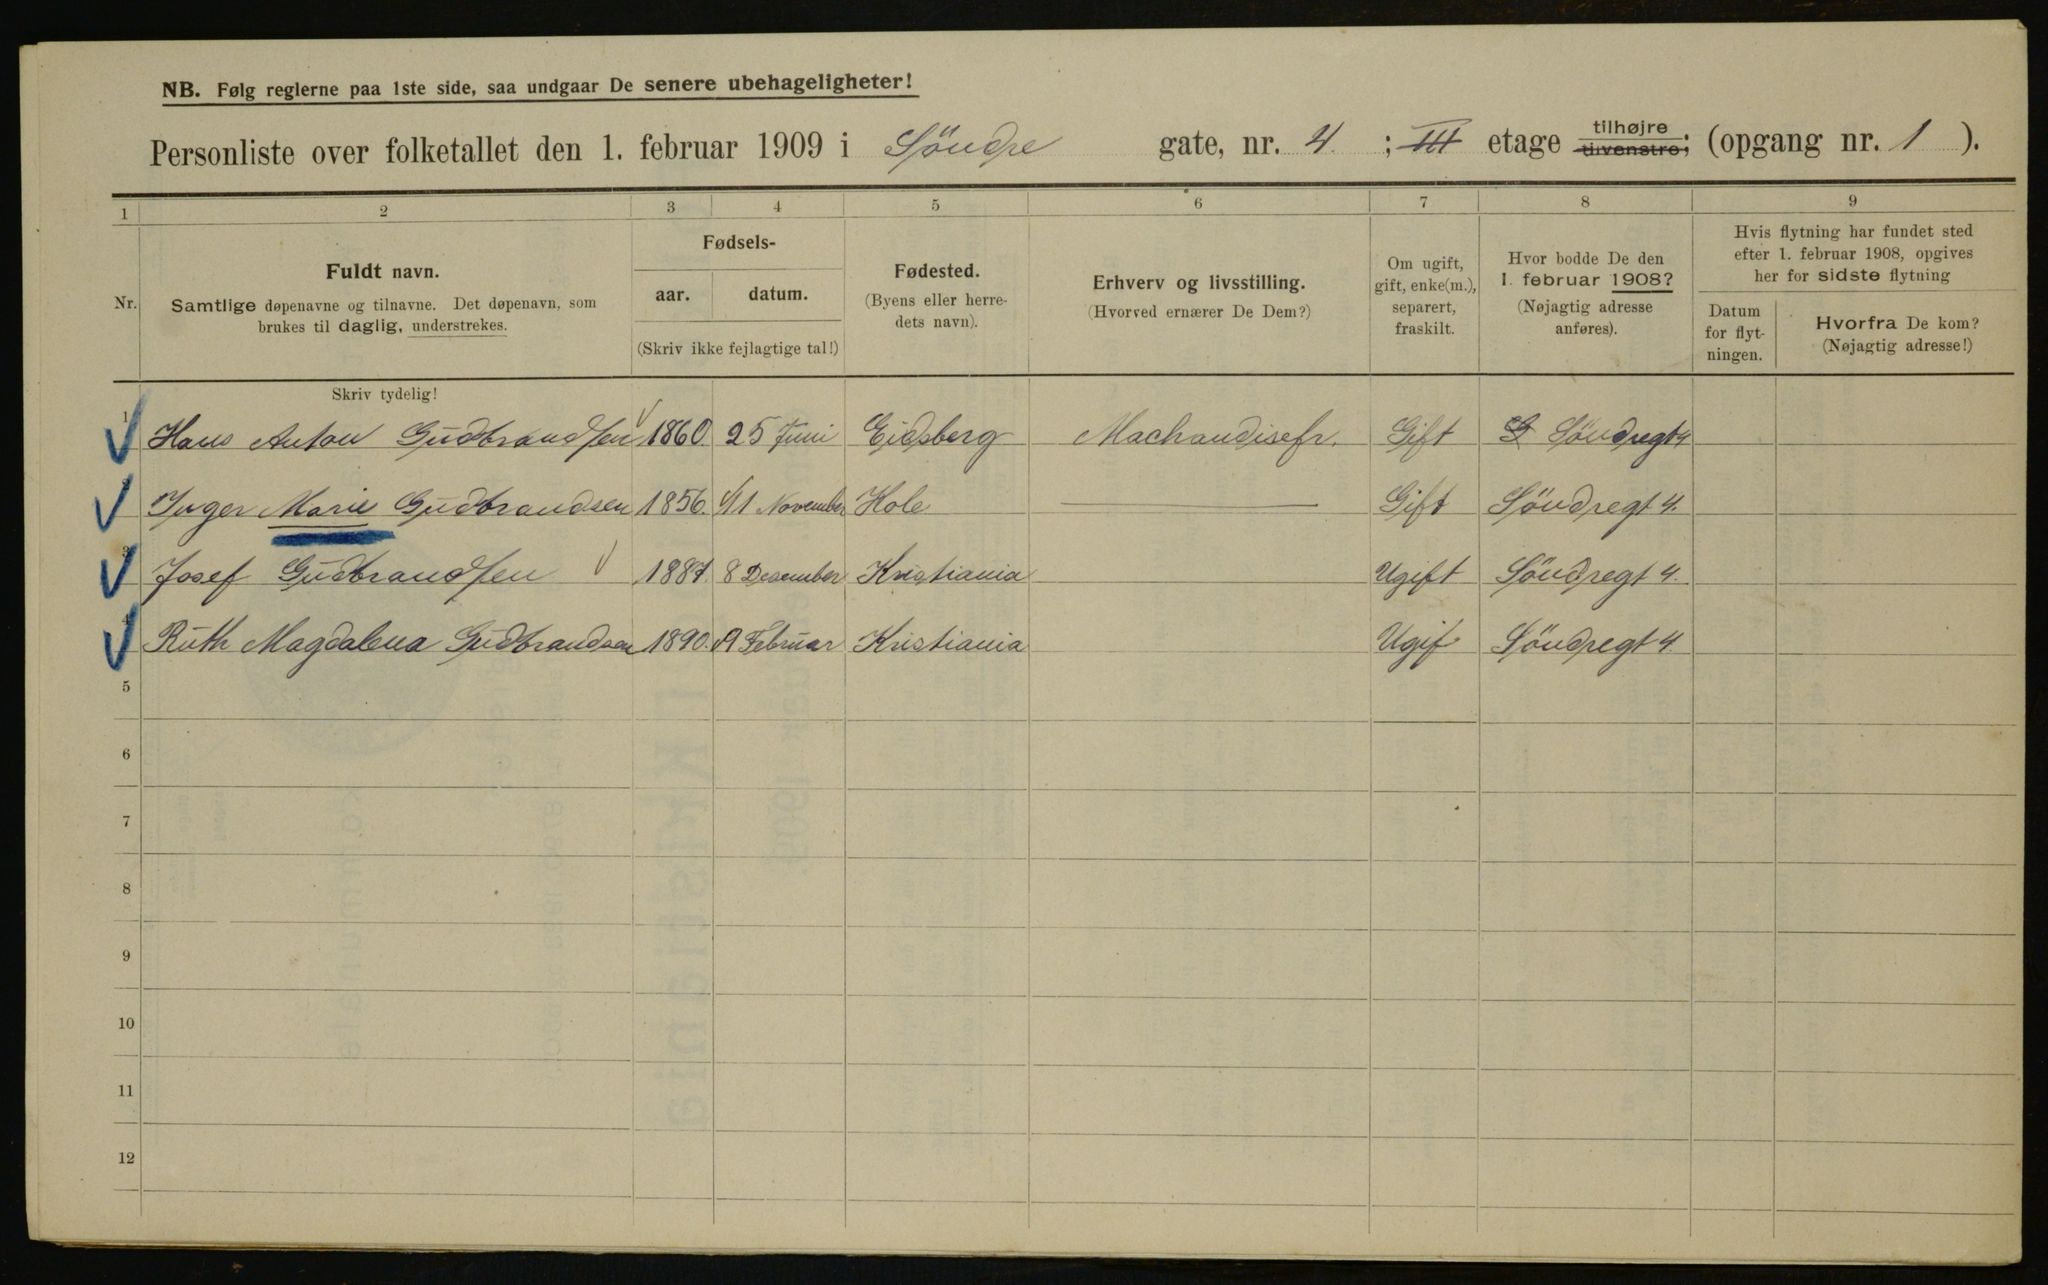 NB. Følg reglerne paa 1ste side, saa undgaar De senere ubehageligheter!
Personliste over folketallet den 1. februar 1909 i Söndre gate, nr. 4. ; III etage tilhøjre tilvenstre; (opgang nr. 1 ).
1 2 3 4 5 6 7 8 9
Nr.
Fuldt navn.
Samtlige døpenavne og tilnavne. Det døpenavn, som
brukes til daglig, understrekes.
Fødsels-
aar. datum.
(Skriv ikke fejlagtige tal!)
Fødested.
(Byens eller herre-
dets navn).
Erhverv og livsstilling.
(Hvorved ernærer De Dem?)
Om ugift,
gift, enke(m.),
separert,
fraskilt.
Hvor bodde De den
1. februar 1908?
(Nøjagtig adresse
anføres).
Hvis flytning har fundet sted
efter 1. februar 1908, opgives
her for sidste flytning
Datum
for flyt-
ningen.
Hvorfra De kom?
(Nøjagtig adresse!)
Skriv tydelig!
1 Hans Anton Gudbrandsen 1860. 25 Juni Eidsberg Machandisefr. Gift Söndregt 4
Inger Marie Gudbrandsen 1856. 11 November Hole Gift Söndregt 4.
3 Josef Gudbrandsen 1887. 8 Desember Kristiania Ugift Söndregt 4.
4 Ruth Magdalena Gudbrandsen 1890. 9 Februar Kristiania Ugif Söndregt 4.
5
6
7
8
9
10
11
12